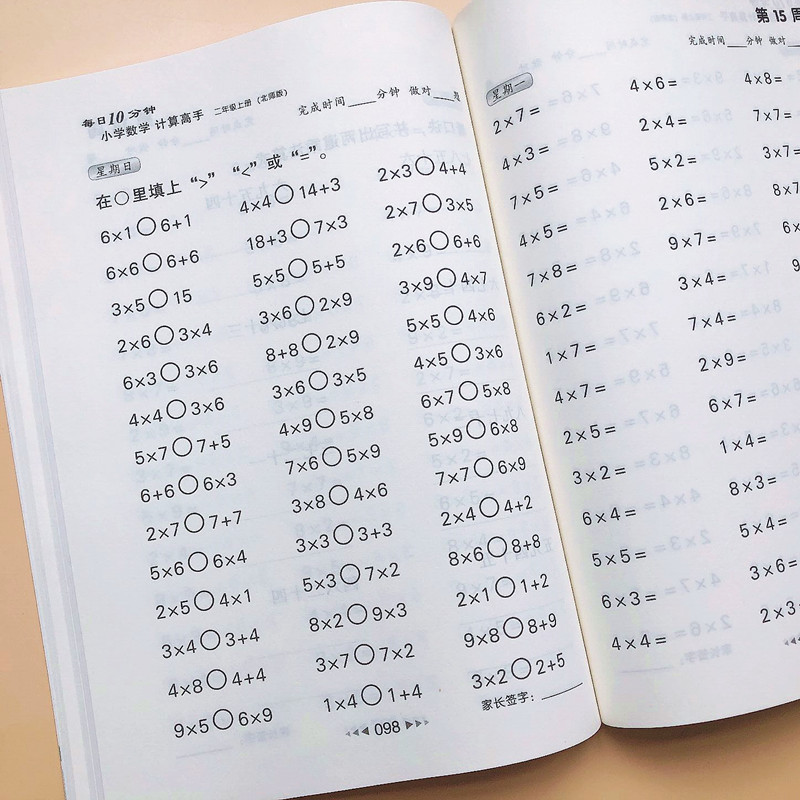 每日10分钟
小学数学 计算高手 二年级上册（北师版）
完成时间____分钟 做对____题
星期日
在○里填上“>”“<”或“=”。
6×1○6+1 4×4○14+3 2×3○4+4
6×6○6+6 18+3○7×3 2×7○3×5
3×5○15 5×5○5+5 2×6○6+6
2×6○3×4 3×6○2×9 3×9○4×7
6×3○3×6 8+8○2×9 5×5○4×6
4×4○3×6 3×6○3×5 4×5○3×6
5×7○7+5 4×9○5×8 6×7○5×8
6+6○6×3 7×6○5×9 5×9○6×8
2×7○7+7 3×8○4×6 7×7○6×9
5×6○6×4 3×3○3+3 2×4○4+2
2×5○4×1 5×3○7×2 8×6○8+8
3×4○3+4 8×2○9×3 2×1○1+2
4×8○4+4 3×7○7×2 9×8○8+9
9×5○6×9 1×4○1+4 3×2○2+5
家长签字：______
098
第15周
完成时间____分钟 做对
星期一
2×7= 4×6= 4×8=
4×3= 2×4= 7×7=
7×5= 5×2= 3×7=
4×5= 2×6= 8×7
7×8= 9×7= 6×
6×2= 3×4=
1×7= 7×4=
4×7= 2×9=
2×5= 6×7=
3×2= 1×4=
6×4= 8×3=
5×5= 5×4=
6×3= 3×6=
4×4= 2×3=